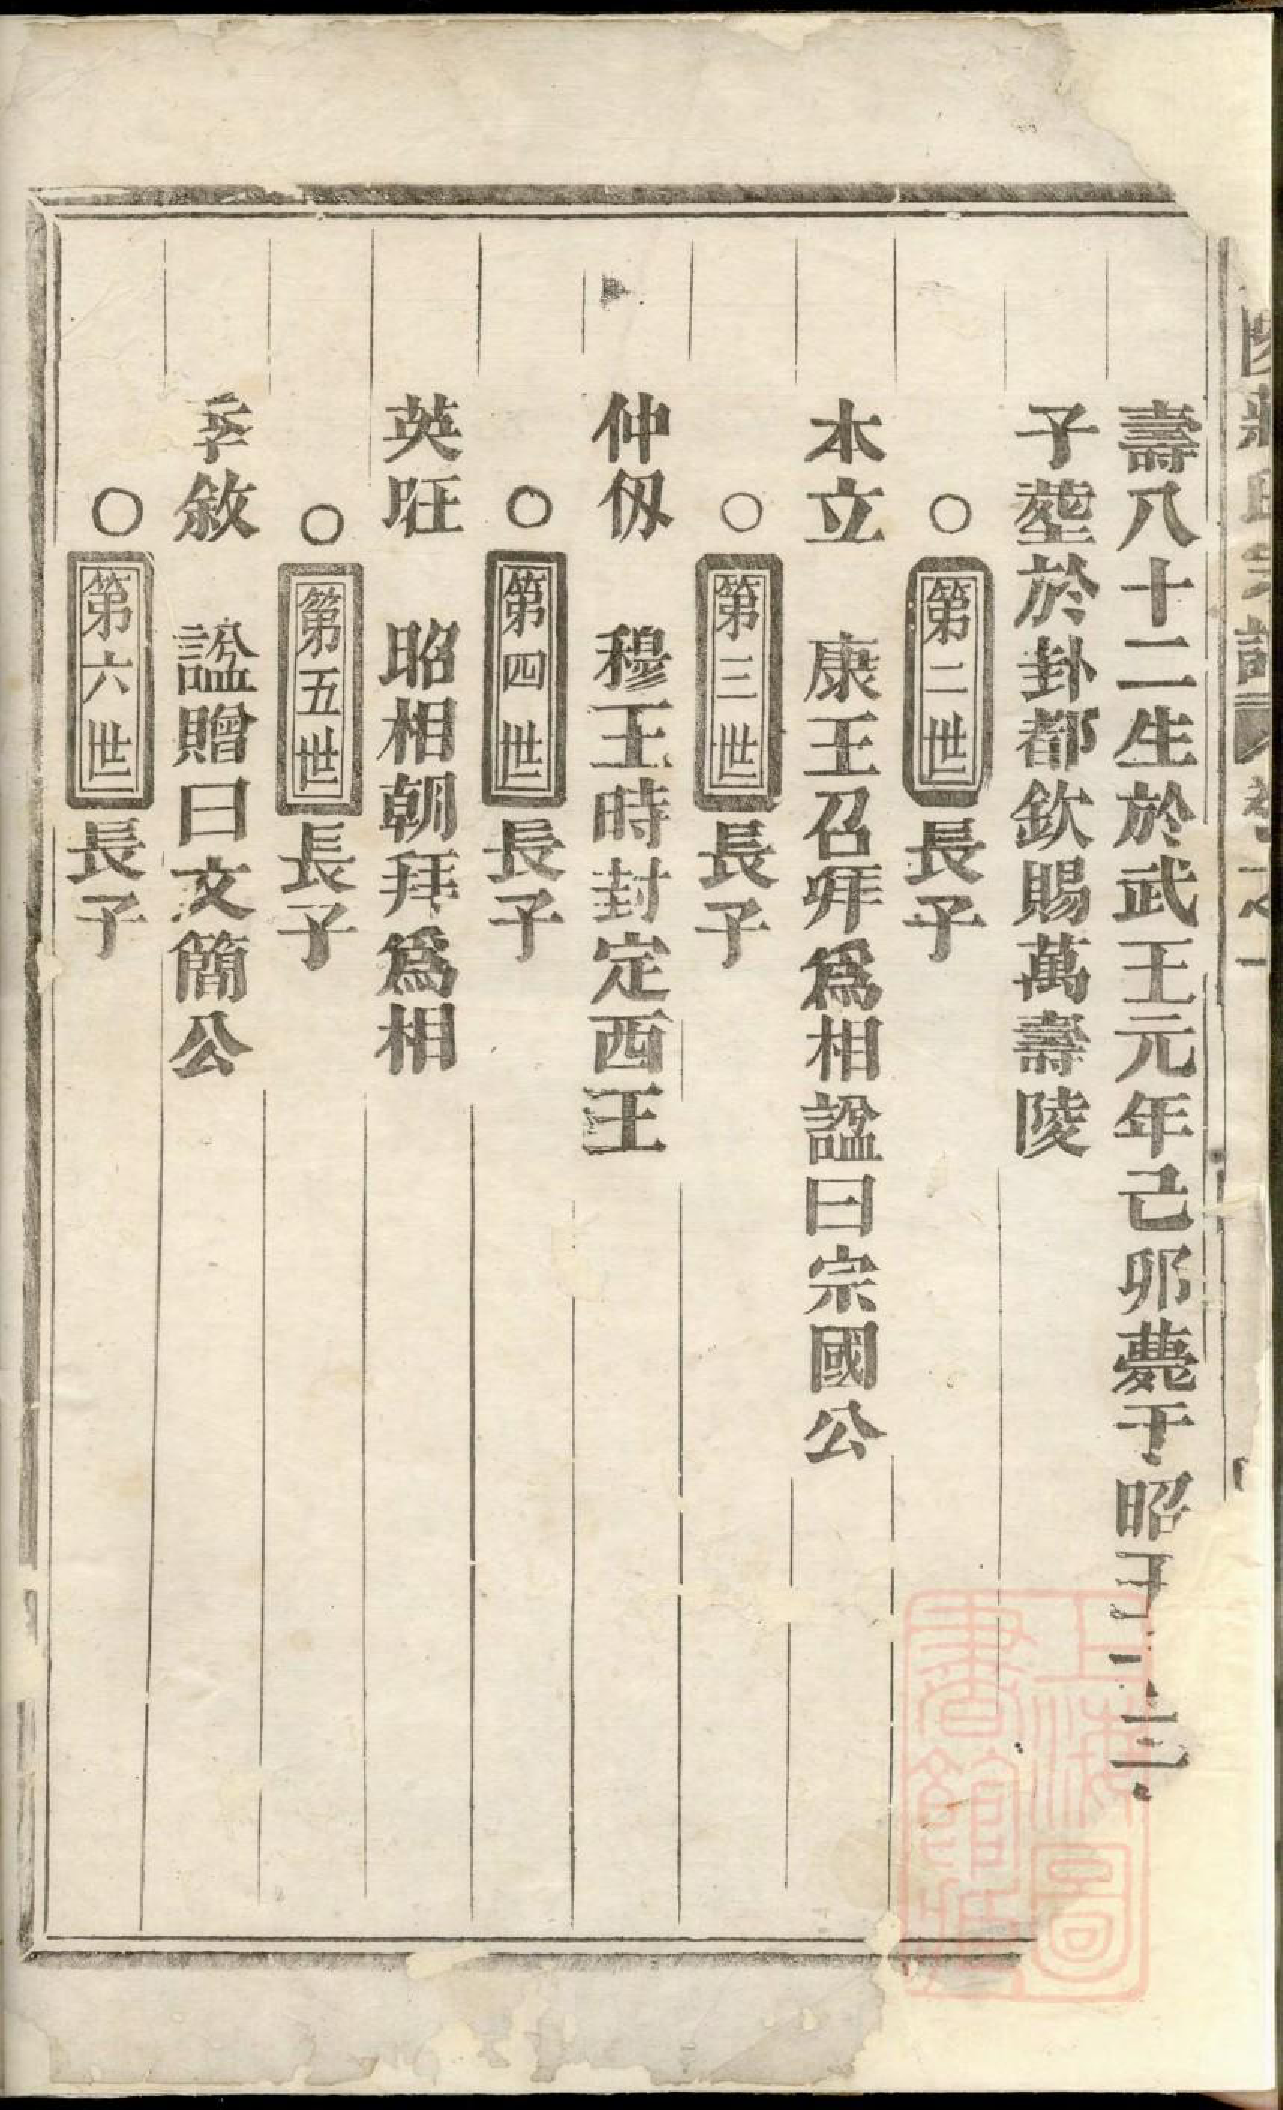 壽八十二生於武王元年己卯薨于昭王二
子塟於卦都欽賜萬壽陵
○第二世長子
本立 康王召拜爲相諡曰宗國公
○第三世長子
仲伋 穆王時封定西王
○第四世長子
英旺 昭相朝拜爲相
○第五世長子
季敘 諡贈曰文簡公
○第六世長子
上海圖
書館藏